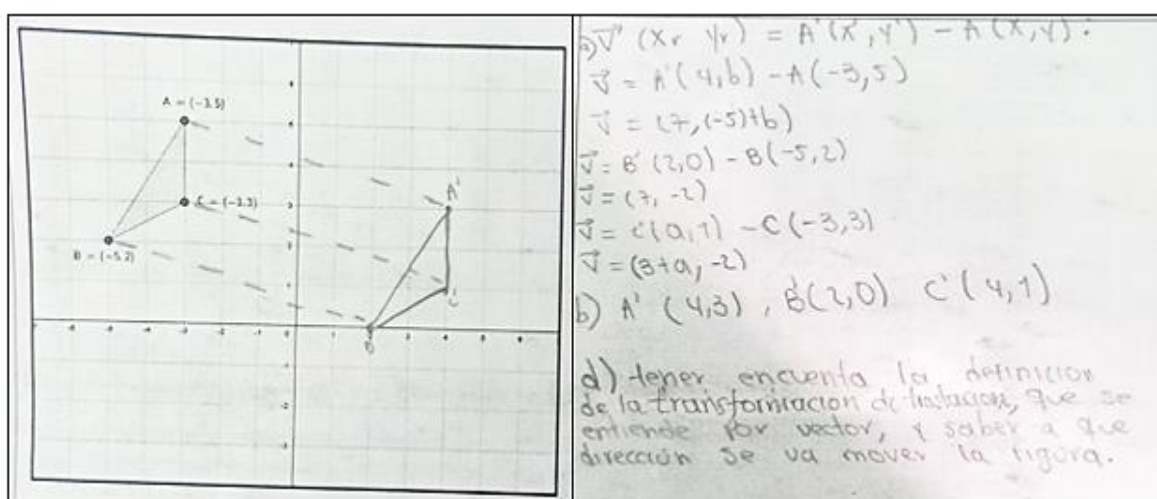 A = (-3,5)
C = (-3,3)
B = (-5,2)
A'
C'
B
a) V (Xr Yr) = A'(x',y') - A(x,y).
V = A'(4,b) - A(-3,5)
V = (7,(-5)+b)
V = B'(2,0) - B(-5,2)
V = (7,-2)
V = C'(a,1) - C(-3,3)
V = (3+a,-2)
b) A' (4,3) , B'(2,0) C' (4,1)
d) tener encuenta la definicion
de la transformacion de traslacion, que se
entiende por vector, y saber a que
dirección se va mover la figura.